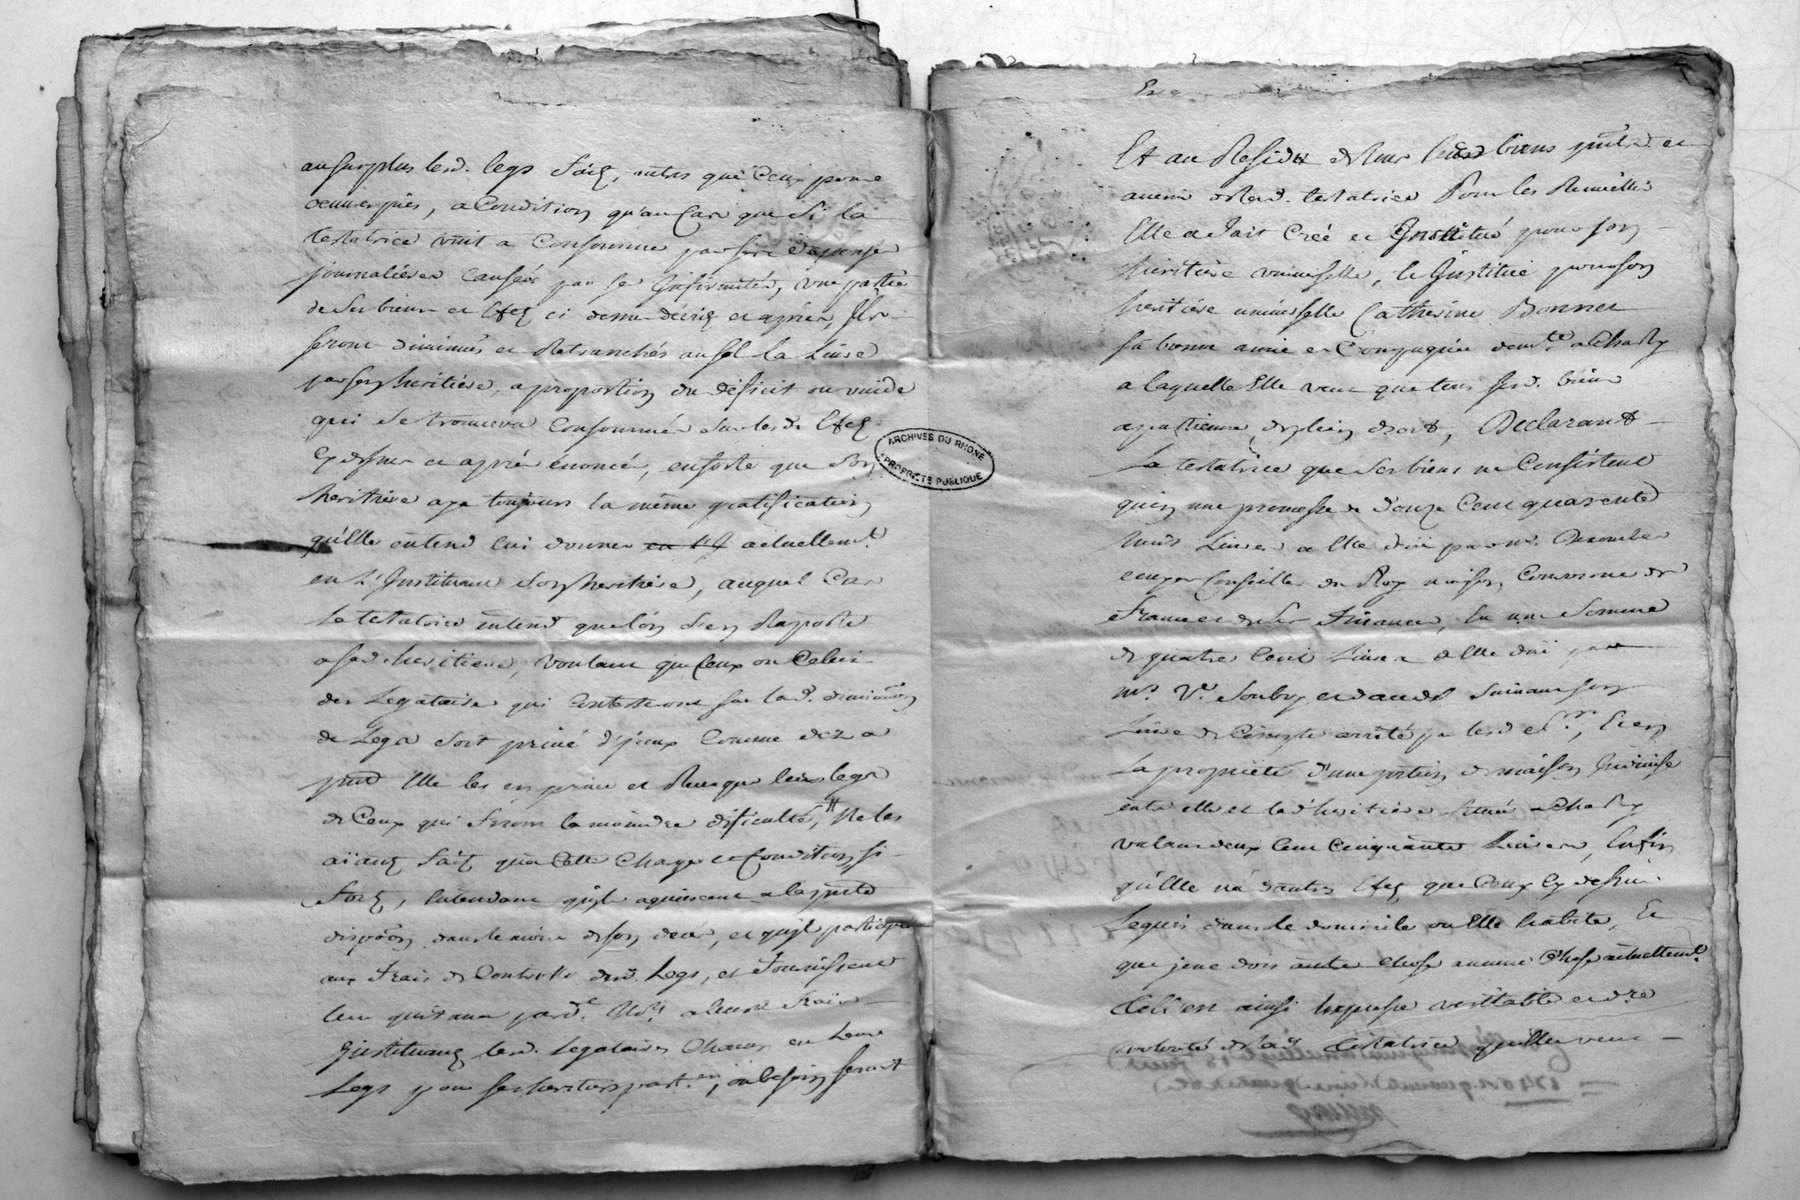 au surplus lesd. legs faitz, autres que Ceux pour
œuvres pies, a Condition qu'au Cas que Si la
testatrice vint a Consommer par sa dépense
journalière Causée par ses Infirmités, une partie
de Ses biens et Effetz ci dessus décris et après, Ils
seront diminués et Retranchés au sol la Livre
par son heritière, a proportion du déficit ou vuide
qui Se trouvera Consommé Sur lesd. Effetz
Cy dessus et après énoncés, ensorte que Son
heritière aye toujours la même gratification
qu'Elle entend lui donner actuellemt.
en L'Instituant Son heritière, auquel Cas
la testatrice entend que l'on s'en Raporte
a sad. heritière, voulant que Ceux ou Celui
des Legataires qui Contesteront sur lad. diminuon
de Legs soit privé d'jceux Comme dez a
pnt Elle les en prive et Revoque leurs legs
de Ceux qui feront la moindre dificulté, Ne les
aïant faitz que Cette Charge et Condition, si
fort, Entendant qu'jls aquiescent a la pnte
disposon dans le mois de son decès, et qu'jls participe
aux frais de Controlle desd. Legs, et fournissent
leur quittance pard. Nore a leurs frais
Instituant lesd. Legataires Chacun en Leurs
Legs pour ses heritiers part.ers, ou besoin seroit
Et au Residu de tous sesd biens pnts et
avenir de lad. testatrice Pour les Recueillir
Elle a fait Créé et Institué pour son
heritière universelle, le Institue pour son
heritière universelle Catherine Bonnet
sa bonne amie et Compagnie demte. a Charly
a laquelle Elle veut que tous sesd. biens
apartienne de plein droit, Declarant
La testatrice que Ses biens ne Consistent
qu'en une promesse de Douze Cent quarente
huit Livres a Elle düe par mr.
ecuyer Conseiller du Roy maison Couronne de
France et de Ses Finances, En une Somme
de quatre Cent Livres a Elle düe par
mrs. Ve. Soubry et Suivant son
Livre de Compte arrêté par lesd Srs, Et en
La propriété d'une portion de maison Indivise
entre elle et lad. heritière Situé a Charly
valant deux Cent Cinquante Livres, Enfin
qu'Elle n'a d'autres Effetz que Ceux Cy dessus
Legués dans le domicile ou Elle habite, Et
que je ne dois autre chose aucune Chose actuellemt.
Cela est ainsi l'expresse veritable et dre
volonté de lade testatrice qu'elle veut
ARCHIVES DU RHONE
PROPRIETE PUBLIQUE